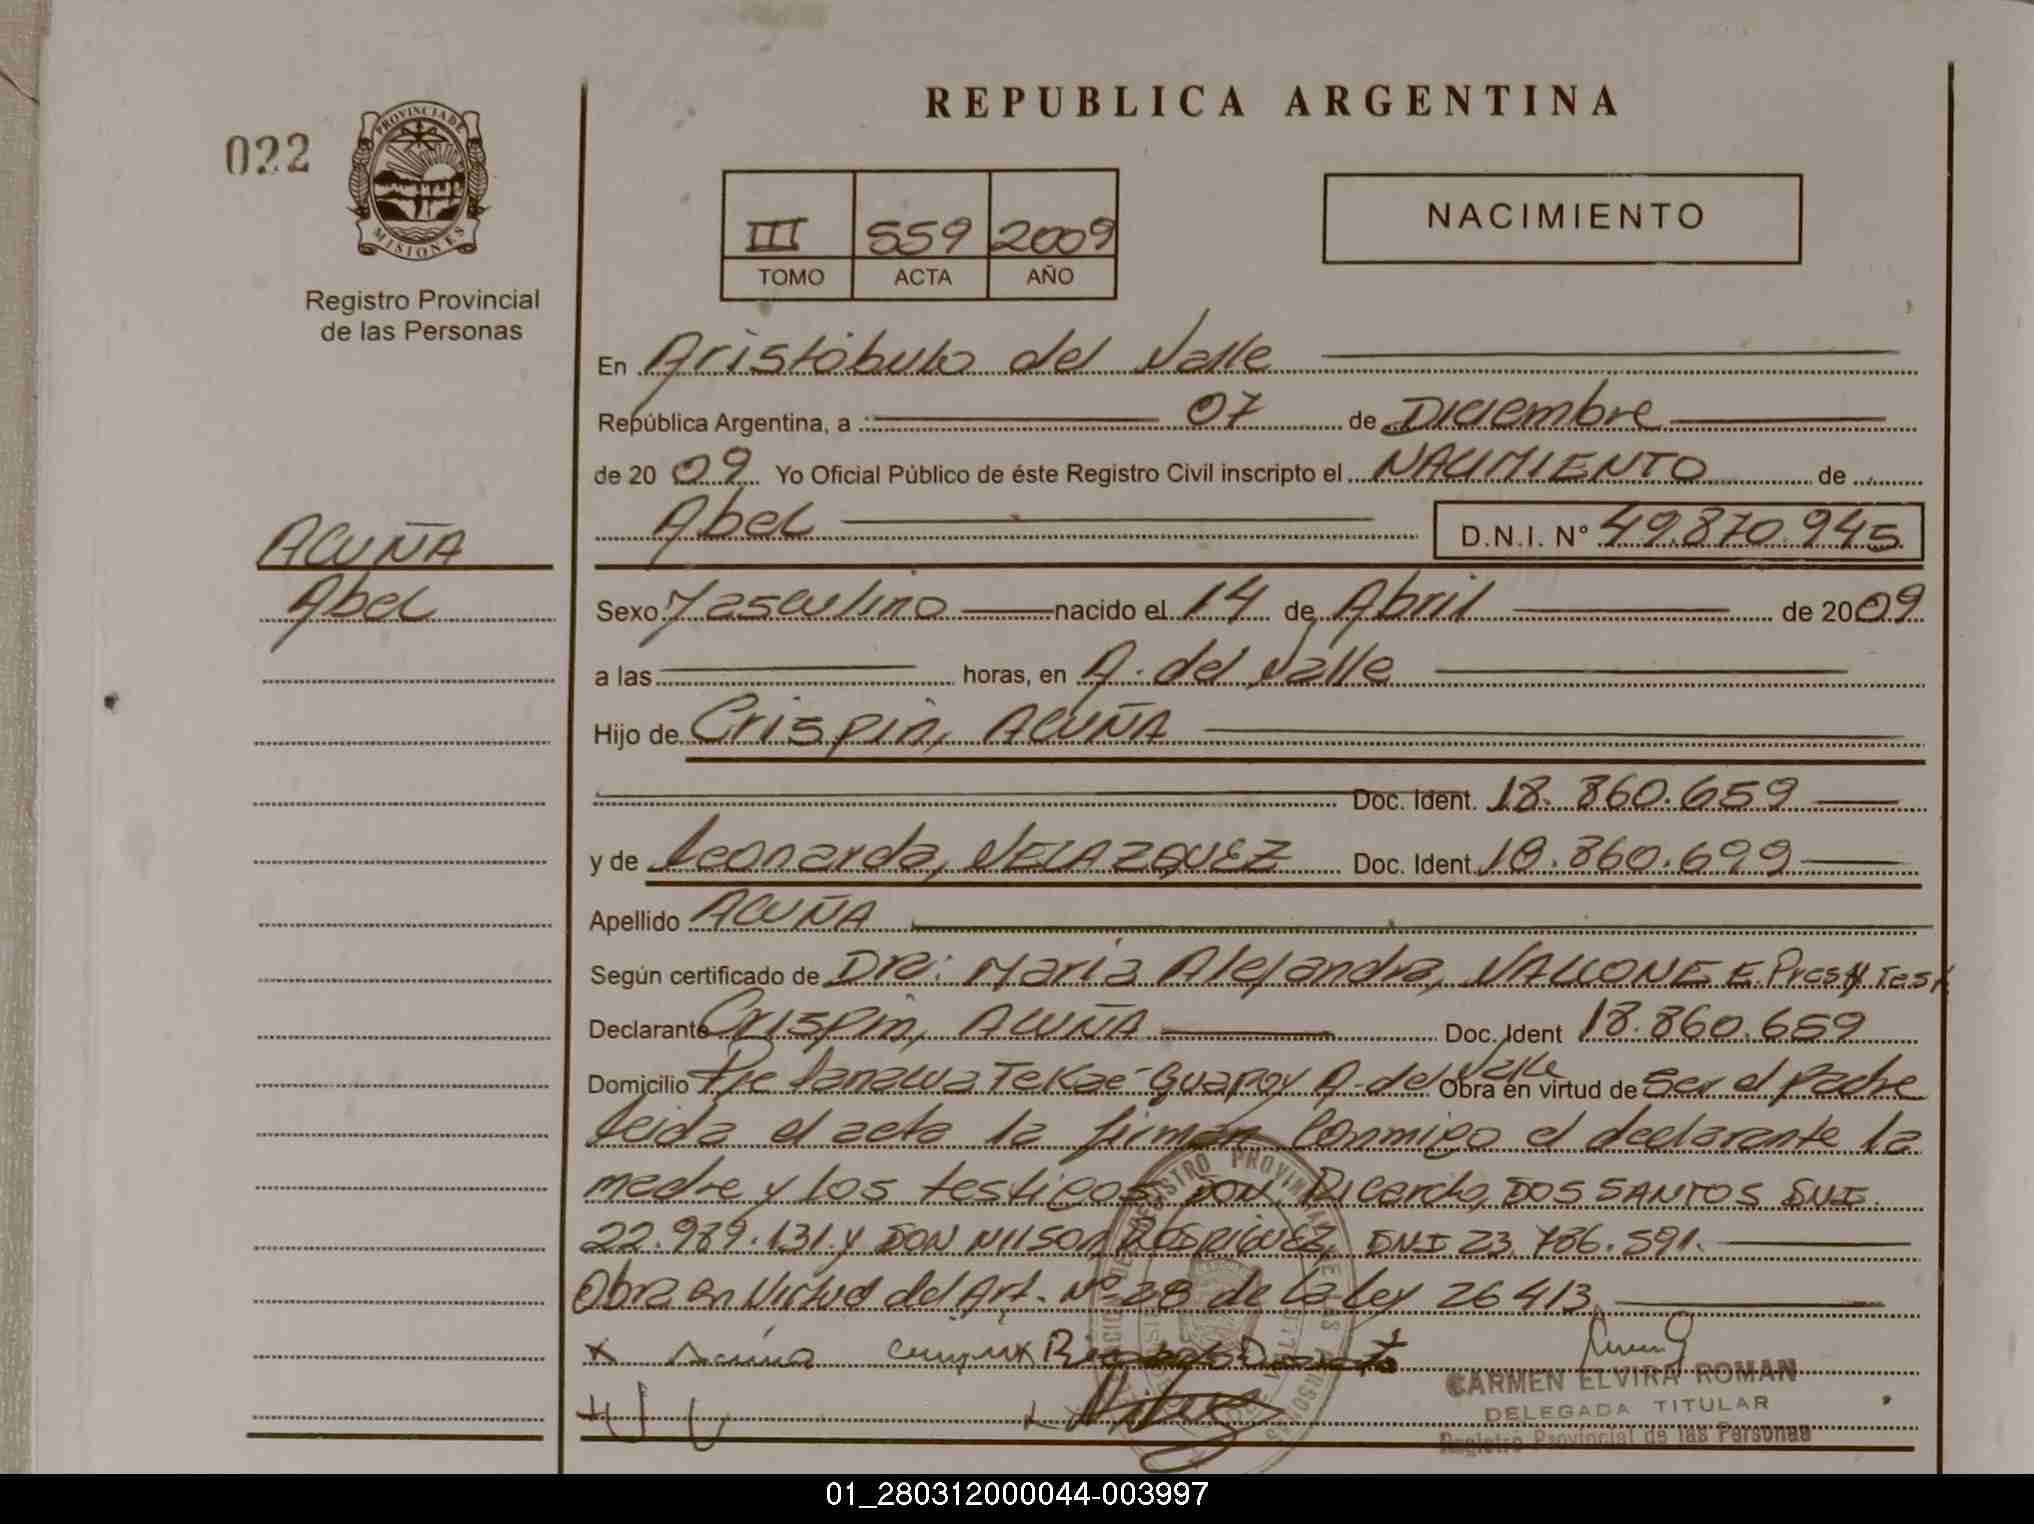 022
PROVINCIA DE
MISIONES
Registro Provincial
de las Personas
REPUBLICA ARGENTINA
III 559 2009
TOMO ACTA AÑO
NACIMIENTO
En Aristóbulo del Valle
República Argentina, a 07 de Diciembre
de 2009 Yo Oficial Público de éste Registro Civil inscripto el NACIMIENTO de
Abel D.N.I. N° 49.870.945
ACUÑA
Abel
Sexo Masculino nacido el 14 de Abril de 2009
a las horas, en A. del Valle
Hijo de Crispin, ACUÑA
Doc. Ident. 18.860.659
y de Leonarda, VELAZQUEZ Doc. Ident. 18.860.699
Apellido ACUÑA
Según certificado de DRA: Maria Alejandra, VALLONE E. Pres y Test
Declarante Crispin, ACUÑA Doc. Ident 18.860.659
Domicilio A. del Valle Obra en virtud de Ser el Padre
leida el acta la firman Conmigo el declarante la
madre y los testigos DON Ricardo, DOS SANTOS DNI.
22.989.131. y DON NILSON RODRIGUEZ, DNI 23.786.591.
Obra en Virtud del Art. Nº 28 de la Ley 26413
CARMEN ELVIRA ROMAN
DELEGADA TITULAR
Registro Provincial de las Personas
01_280312000044-003997